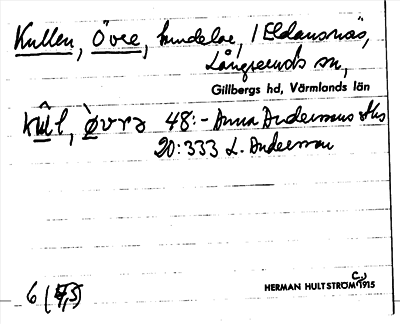 Kullen, Övre, hemdelar, i Eldansnäs,
Långseruds sn,
Gillbergs hd, Värmlands län
48:- Anna Anderssons Sbs
20:333 L. Andersson
6
HERMAN HULTSTRÖM C:J 1915